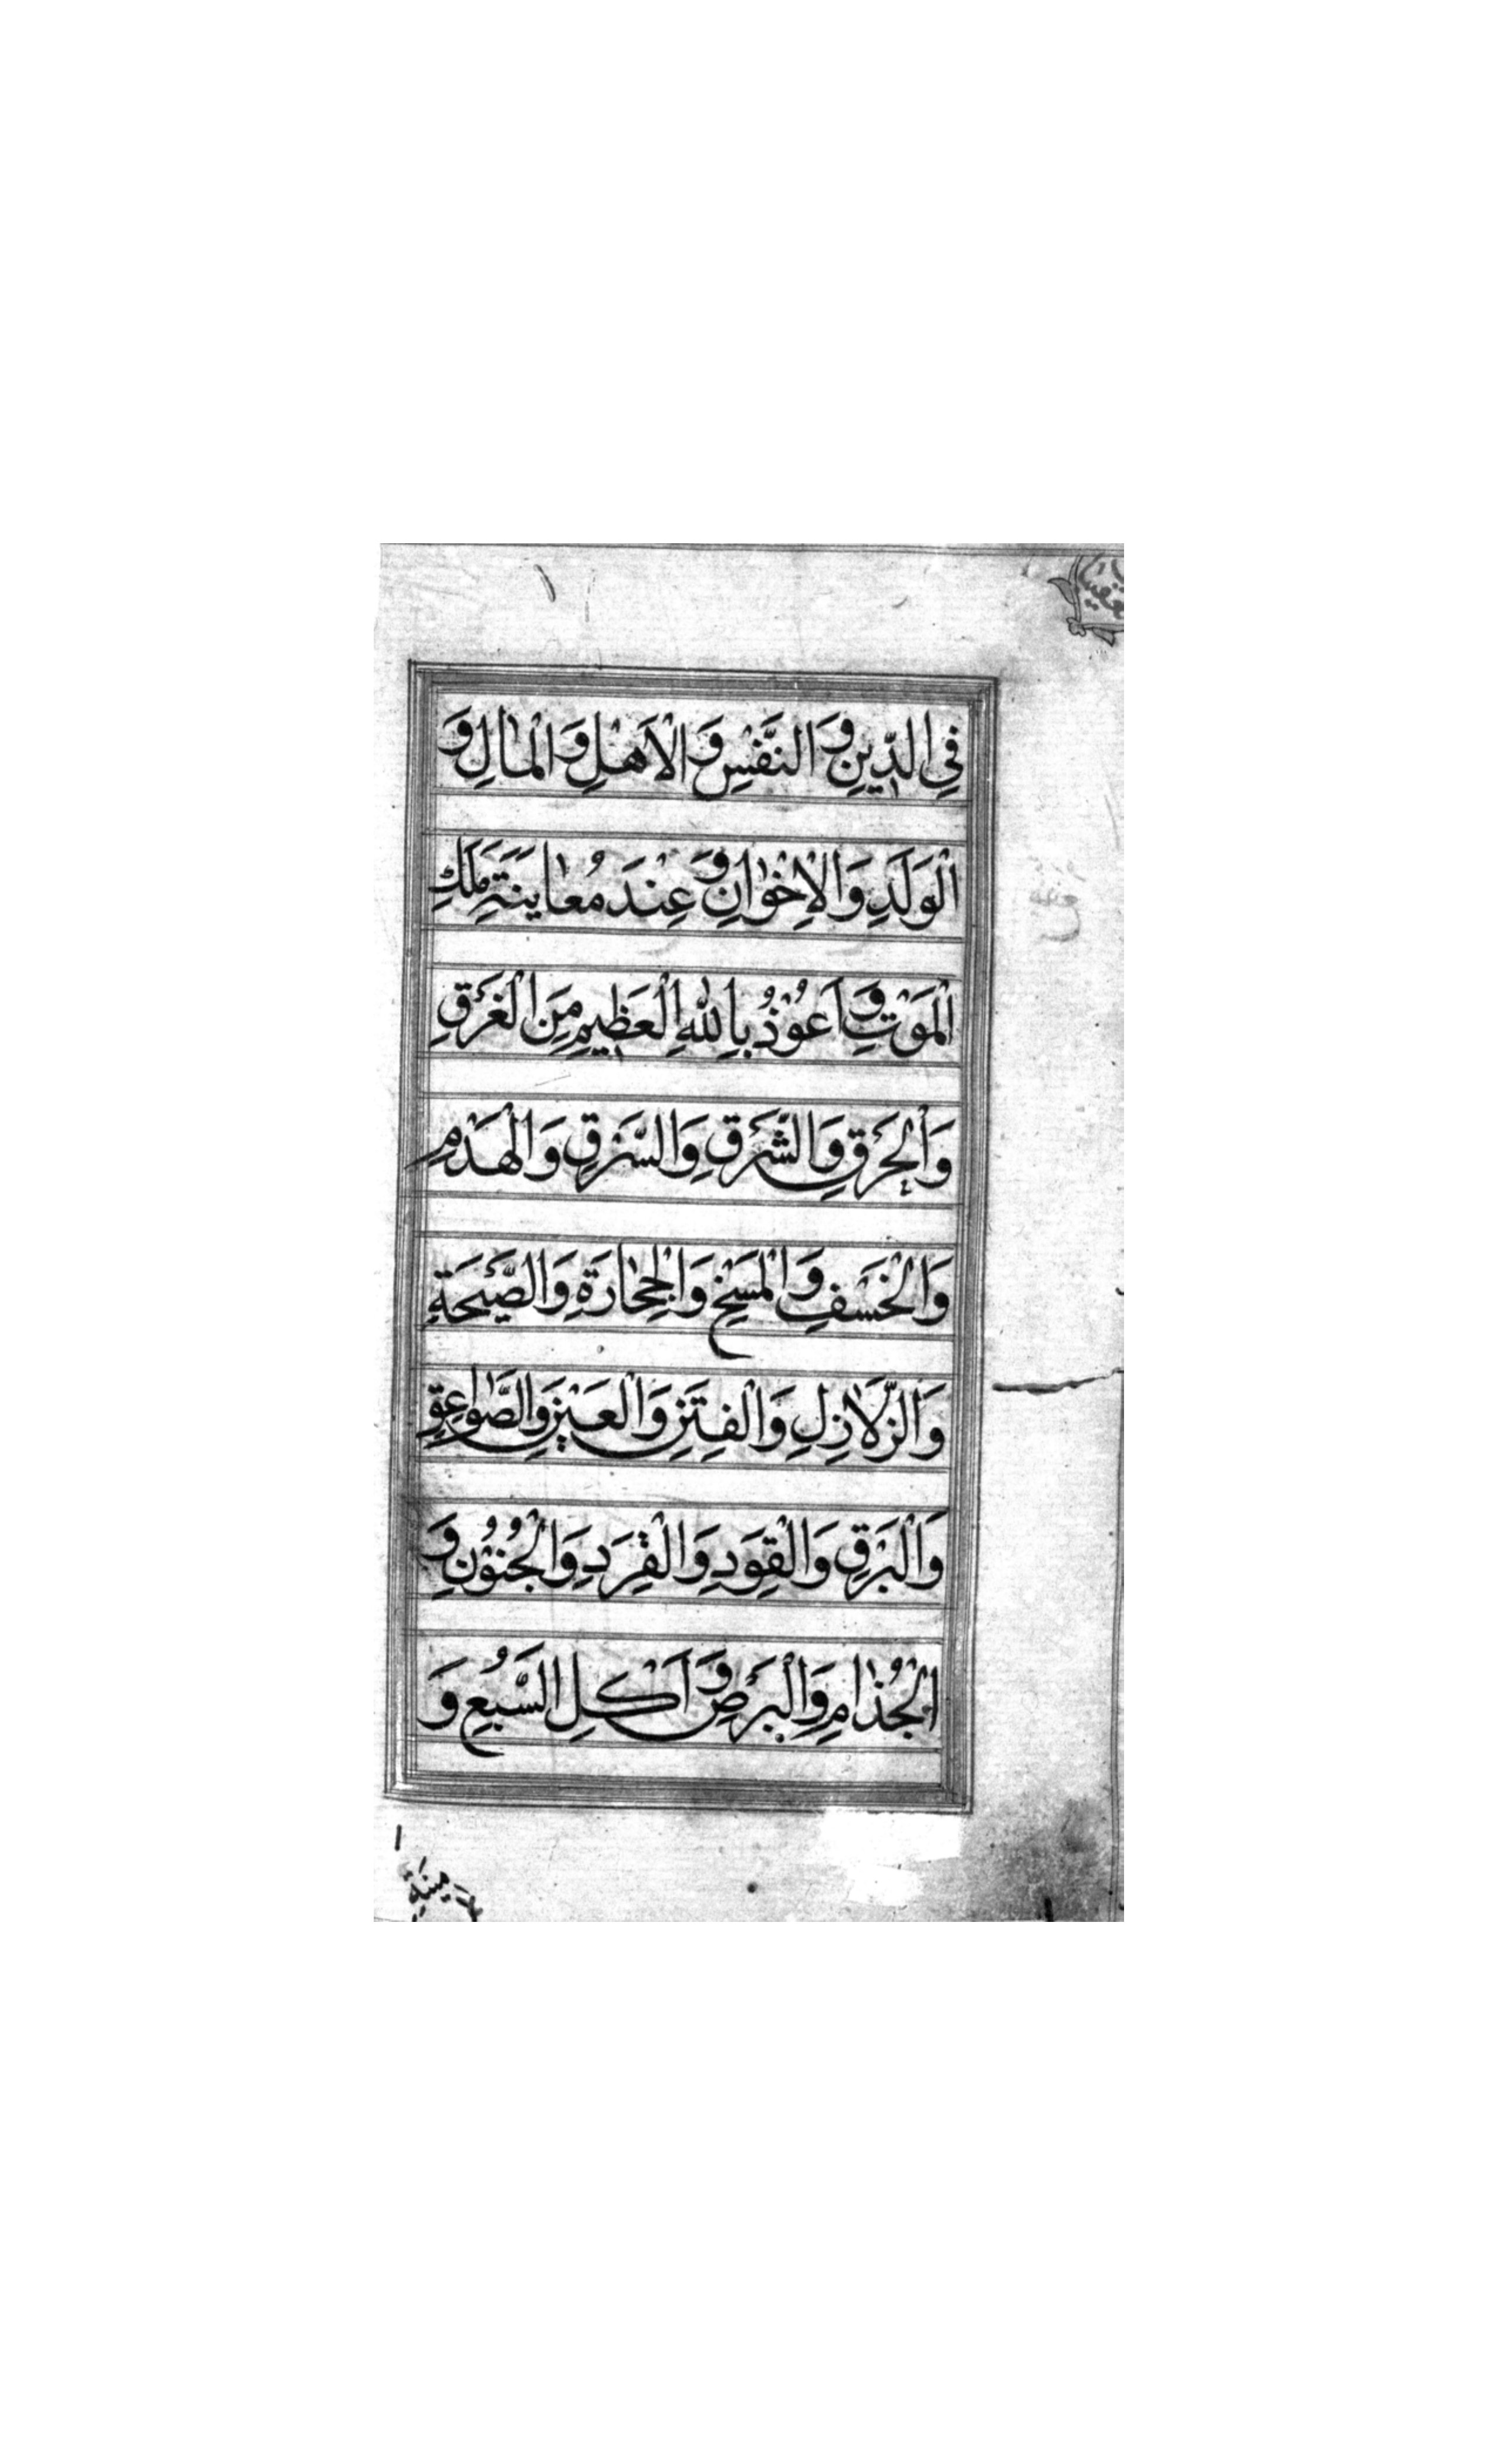 فِي الدِّينِ وَ النَّفْسِ وَ الْاَهْلِ وَ الْمالِ وَ
الْوَلَدِ وَ الْاِخْوانِ وَ عِنْدَ مُعايَنَةِ مَلَكِ
الْمَوْتِ وَ اَعُوْذُ بِاللهِ الْعَظِيمِ مِنَ الْغَرَقِ
وَ الْحَرَقِ وَ الشَّرَقِ وَ السَّرَقِ وَ الْهَدْمِ
وَ الْخَسْفِ وَ الْمَسْخِ وَ الْحِجارَةِ وَ الصَّيْحَةِ
وَ الزَّلازِلِ وَ الْفِتَنِ وَ الْعَيْنِ وَ الصَّواعِقِ
وَ الْبَرْقِ وَ الْقِوَدِ وَ الْقِرَدِ وَ الْجُنُوْنِ وَ
الْجُذامِ وَ الْبَرَصِ وَ اَكْلِ السَّبُعِ وَ